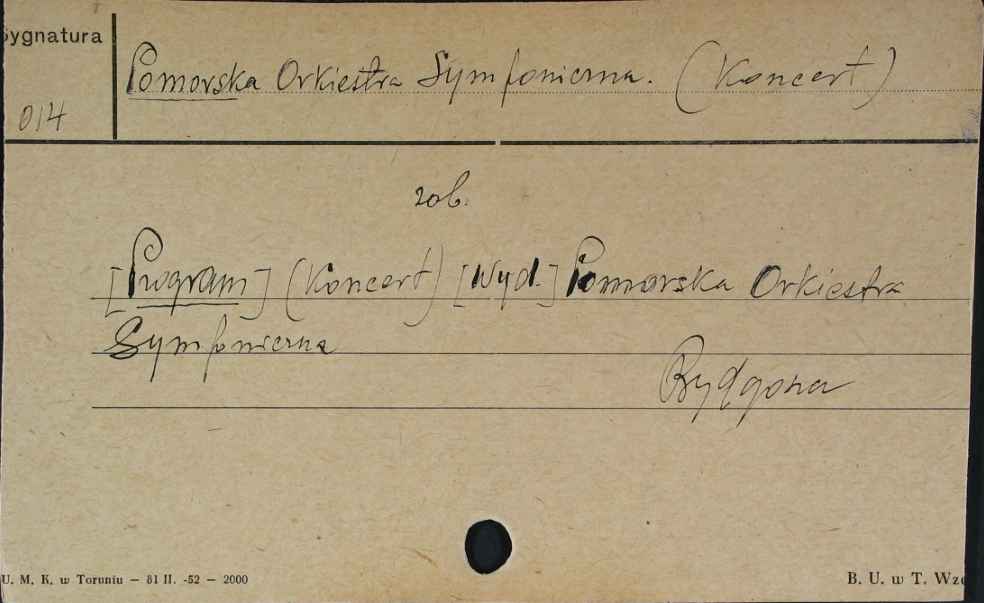 Sygnatura
Pomorska Orkiestra Symfoniczna. (Koncert)
014
zob.
[Program] (Koncert) [Wyd.] Pomorska Orkiestra
Symfoniczna
Bydgoszcz
U. M. K. w Toruniu – 81 II. -52 – 2000
B. U. w T. Wzó